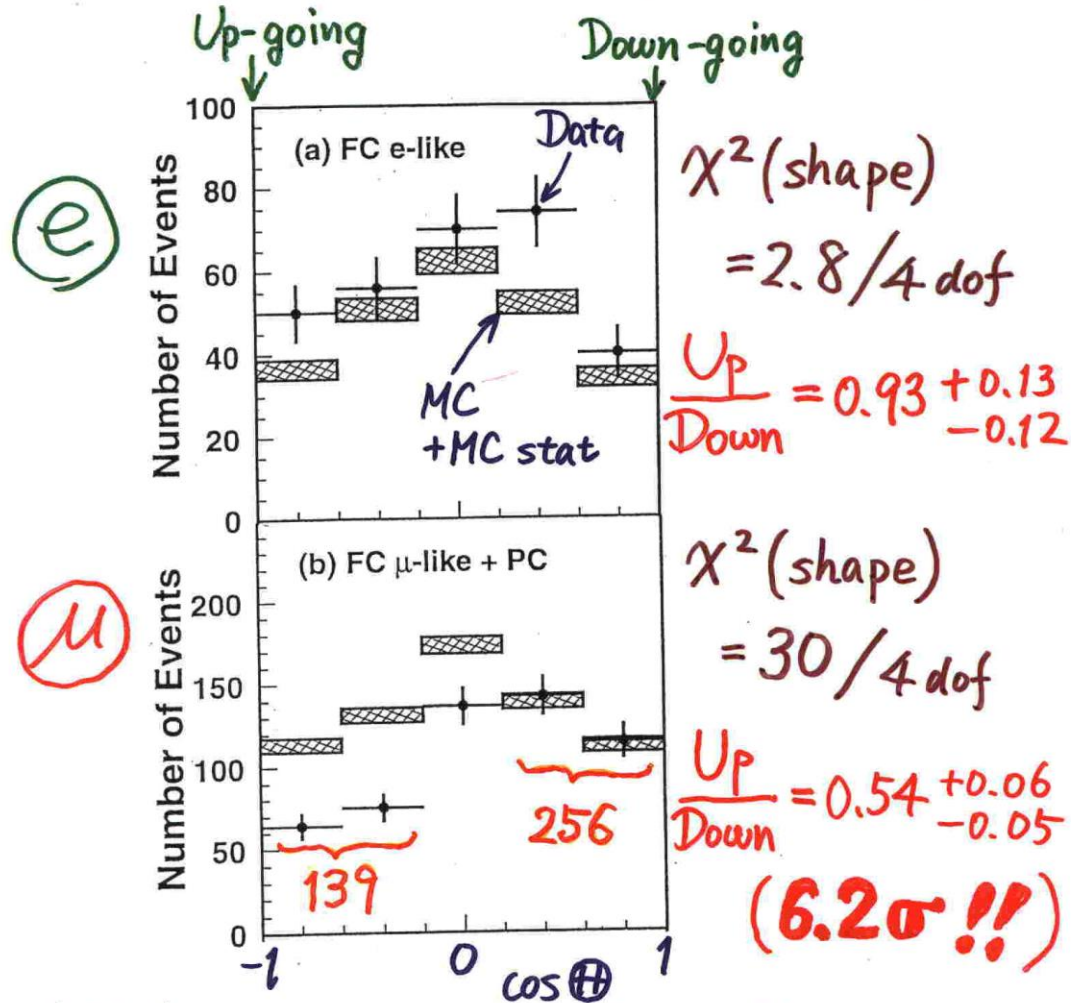 Up-going
Down-going
100
80
60
40
20
0
Number of Events
(a) FC e-like
Data
MC
+MC stat
e
χ² (shape)
= 2.8 / 4 dof
Up
Down
= 0.93 +0.13
-0.12
200
150
100
50
0
Number of Events
(b) FC μ-like + PC
139
256
μ
χ² (shape)
= 30 / 4 dof
Up
Down
= 0.54 +0.06
-0.05
(6.2σ !!)
-1
0
1
cos Θ